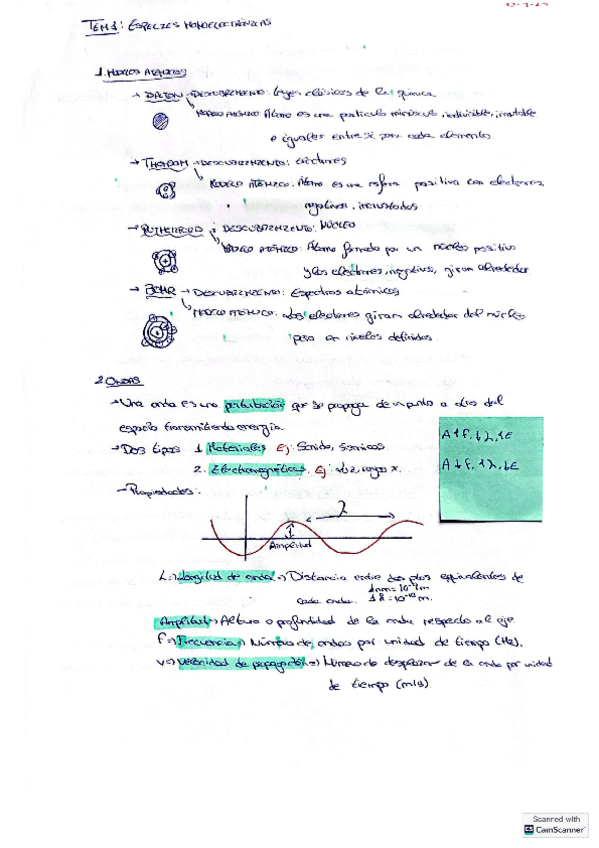 TEMA 1: ESPECIES MONOELECTRÓNICAS
1. MODELOS ATÓMICOS
→ DALTON → DESCUBRIMIENTO: Leyes clásicas de la química.
MODELO ATÓMICO: Átomo es una partícula minúscula, indivisible, inmutable
e iguales entre sí para cada elemento.
→ THOMSON → DESCUBRIMIENTO: electrones
MODELO ATÓMICO: Átomo es una esfera positiva con electrones,
negativos, incrustados
→ RUTHERFORD → DESCUBRIMIENTO: NÚCLEO
MODELO ATÓMICO: Átomo formado por un núcleo positivo
y los electrones, negativos, giran alrededor
→ BOHR → DESCUBRIMIENTO: Espectros atómicos
MODELO ATÓMICO: Los electrones giran alrededor del núcleo
pero en niveles definidos.
2. ONDAS
→ Una onda es una perturbación que se propaga de un punto a otro del
espacio transmitiendo energía.
→ Dos tipos 1. Materiales Ej: Sonido, sísmicas.
2. Electromagnéticas. Ej: luz, rayos x.
A↑f, ↓λ, ↑E
A↓f, ↑λ, ↓E
→ Propiedades:
λ
Amplitud
Longitud de onda → Distancia entre dos ptos equivalentes de
cada onda.
1 Å = 10⁻¹⁰ m.
Amplitud → Altura o profundidad de la onda respecto al eje
f → Frecuencia → Número de ondas por unidad de tiempo (Hz).
v → Velocidad de propagación → de la onda por unidad
de tiempo (m/s).
Scanned with
CamScanner